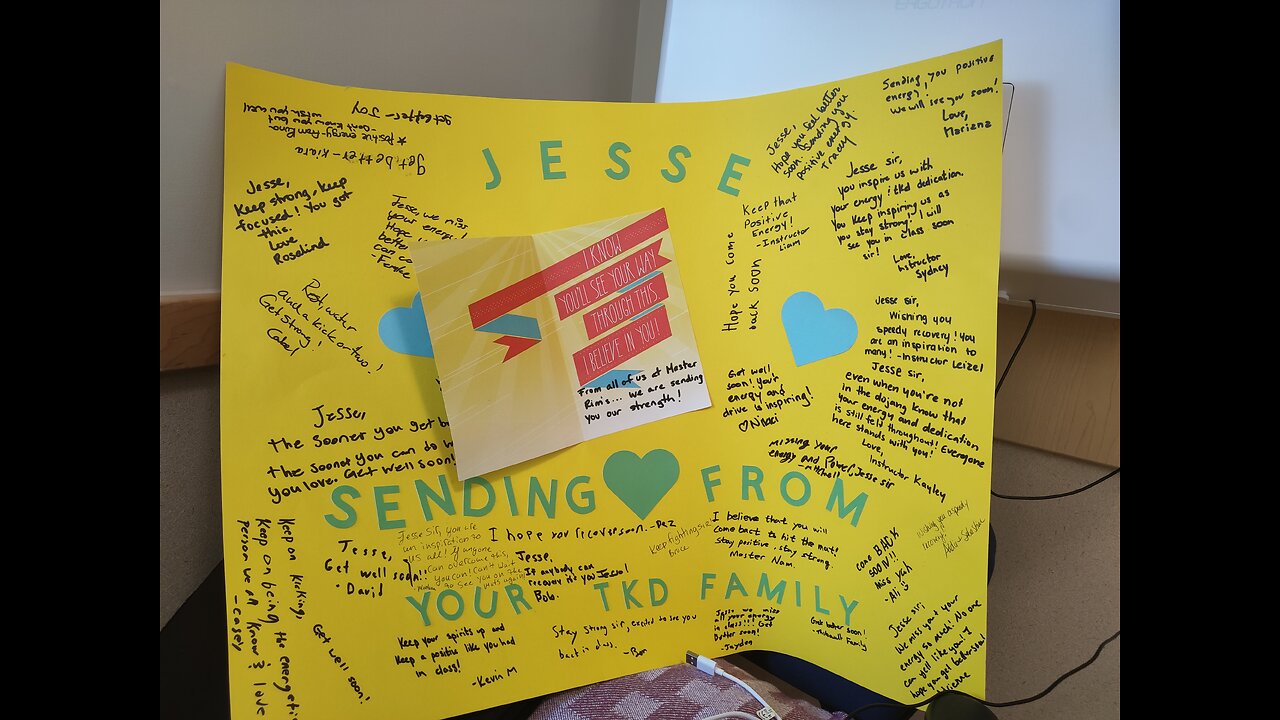 JESSE
SENDING FROM
YOUR TKD FAMILY
get better - Joy
★ Positive energy - from Rina
- Don't know you but
wish you well
get better - Kiara
Jesse,
Keep strong, keep
focused! You got
this.
Love,
Rosekind
Jesse, we miss
your energy
Hope
better
can co
Rest, water
and a kick or two!
Get Strong!
Jesse,
The sooner you get b
the sooner you can do w
you love. Get well soon!
I KNOW
YOU'LL SEE YOUR WAY
THROUGH THIS.
I BELIEVE IN YOU!
From all of us at Master
Rim's... we are sending
you our strength!
Jesse,
Hope you feel better
soon. Sending you
positive energy.
Tracy
Sending you positive
energy!
We will see you soon!
Love,
Mariena
Keep that
Positive
Energy!
- Instructor
Liam
Hope you come
back soon
Jesse sir,
you inspire us with
your energy & tkd dedication.
You keep inspiring us as
you stay strong. I will
see you in class soon
sir!
Love,
Instructor
Sydney
Jesse sir,
Wishing you
speedy recovery! You
are an inspiration to
many! - Instructor Leizel
Get well
soon! Your
energy and
drive is inspiring!
Jesse sir,
even when you're not
in the dojang know that
your energy and dedication
is still felt throughout! Everyone
here stands with you!
Love,
Instructor Kayley
missing your
energy and Power, Jesse sir
- Mitchell
Keep on kicking,
keep on being the energetic
person we all know & love
- Casey
Get well soon!
Jesse,
Get well soon!!
- David
Jesse Sir, you are
an inspiration to
us all! If anyone
can overcome this,
you can! Can't wait
to see you on the
mats again!
I hope you recover soon. - Paz
Jesse,
If anybody can
recover it's you Jesse!
Bob.
Keep fighting sir!
I believe that you will
come back to hit the mat!
stay positive, stay strong.
Master Nam.
come BACK
SOON!!!
miss yah
- Ali
wishing you a speedy
recovery!
Keep your spirits up and
keep a positive like you had
in class!
- Kevin M
Stay strong sir, excited to see you
back in class.
- Ben
Jesse we miss
all your energy
in class!!! Get
better soon!
- Jayden
Get better soon!
Family
Jesse sir,
We miss your
energy so much! No one
can yell like you!
hope you get better soon!